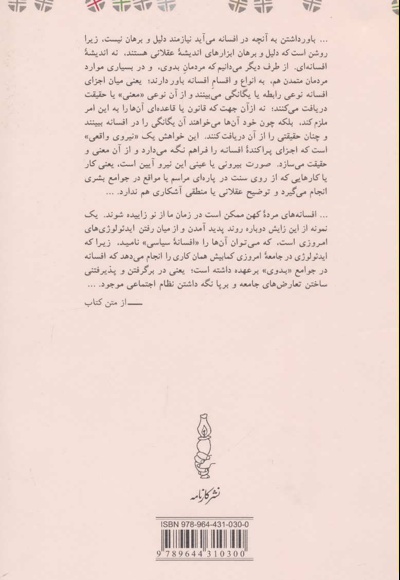 ... باور داشتن به آنچه در افسانه می‌آید نیازمند دلیل و برهان نیست، زیرا
روشن است که دلیل و برهان ابزارهای اندیشهٔ عقلانی هستند، نه اندیشهٔ
افسانه‌ای. از طرف دیگر می‌دانیم که مردمان بدوی، و در بسیاری موارد
مردمان متمدن هم، به انواع و اقسام افسانه باور دارند؛ یعنی میان اجزای
افسانه نوعی رابطه یا یگانگی می‌بینند و از آن نوعی «معنی» یا حقیقت
دریافت می‌کنند؛ نه از آن جهت که قانون یا قاعده‌ای آن‌ها را به این امر
ملزم کند، بلکه چون خود آن‌ها می‌خواهند آن یگانگی را در افسانه ببینند
و چنان حقیقتی را از آن دریافت کنند. این خواهش یک «نیروی واقعی»
است که اجزای پراکندهٔ افسانه را فراهم نگه می‌دارد و از آن معنی و
حقیقت می‌سازد. صورت بیرونی یا عینی این نیرو آیین است، یعنی کار
یا کارهایی که از روی سنت در پاره‌ای مراسم یا مواقع در جوامع بشری
انجام می‌گیرد و توضیح عقلانی یا منطقی آشکاری هم ندارد. ...
... افسانه‌های مردهٔ کهن ممکن است در زمان ما از نو زاییده شوند. یک
نمونه از این زایش دوباره روند پدید آمدن و از میان رفتن ایدئولوژی‌های
امروزی است، که می‌توان آن‌ها را «افسانهٔ سیاسی» نامید، زیرا که
ایدئولوژی در جامعهٔ امروزی کمابیش همان کاری را انجام می‌دهد که افسانه
در جوامع «بدوی» برعهده داشته است؛ یعنی در برگرفتن و پذیرفتنی
ساختن تعارض‌های جامعه و برپا نگه داشتن نظام اجتماعی موجود. ...
— از متن کتاب
نشر کارنامه
ISBN 978-964-431-030-0
9 789644 310300